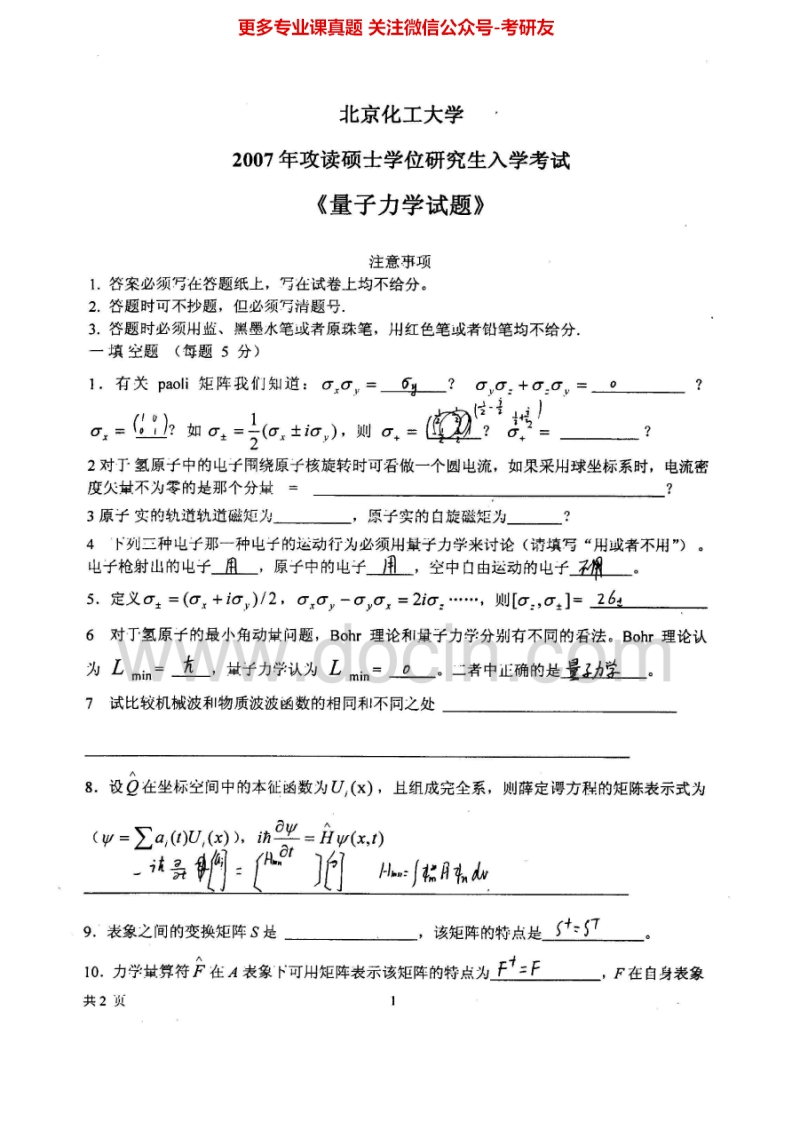 更多专业课真题 关注微信公众号-考研友
北京化工大学
2007 年攻读硕士学位研究生入学考试
《量子力学试题》
注意事项
1. 答案必须写在答题纸上，写在试卷上均不给分。
2. 答题时可不抄题，但必须写清题号.
3. 答题时必须用蓝、黑墨水笔或者原珠笔，用红色笔或者铅笔均不给分.
一 填 空题 （每题 5 分）
1．有关 paoli 矩阵我们知道：σₓσᵧ = ？ σᵧσ_z + σ_zσᵧ = 0 ？
σₓ = ？如 σ± = 1/2(σₓ ± iσᵧ)，则 σ₊ = ？ σ₊² = ？
2 对于 氢原子中的电子围绕原子核旋转时可看做一个圆电流，如果采用球坐标系时，电流密
度矢量不为零的是那个分量 = ？
3 原子 实的轨道轨道磁矩为 ，原子实的自旋磁矩为 ？
4 下列三种电子那一种电子的运动行为必须用量子力学来讨论（请填写“用或者不用”）。
电子枪射出的电子 用 ，原子中的电子 用 ，空中自由运动的电子 不用 。
5．定义σ± = (σₓ + iσᵧ)/2，σₓσᵧ − σᵧσₓ = 2iσ_z ……，则[σ_z,σ±]= 2σ±
6 对于氢原子的最小角动量问题，Bohr 理论和量子力学分别有不同的看法。Bohr 理论认
为 L min = ℏ ，量子力学认为 L min = 0 。二者中正确的是 量子力学 。
www.docin.com
7 试比较机械波和物质波波函数的相同和不同之处
8．设Q̂在坐标空间中的本征函数为Uᵢ(x)，且组成完全系，则薛定谔方程的矩陈表示式为
（ψ = ∑aᵢ(t)Uᵢ(x)），iℏ ∂ψ/∂t = Ĥψ(x,t)
Hmn = ∫ψm* Ĥ ψn dv
9．表象之间的变换矩阵 S 是 ，该矩阵的特点是 S⁺=S⁻ 。
10．力学量算符 F̂ 在 A 表象下可用矩阵表示该矩阵的特点为 F⁺=F ，F 在自身表象
共 2 页 1